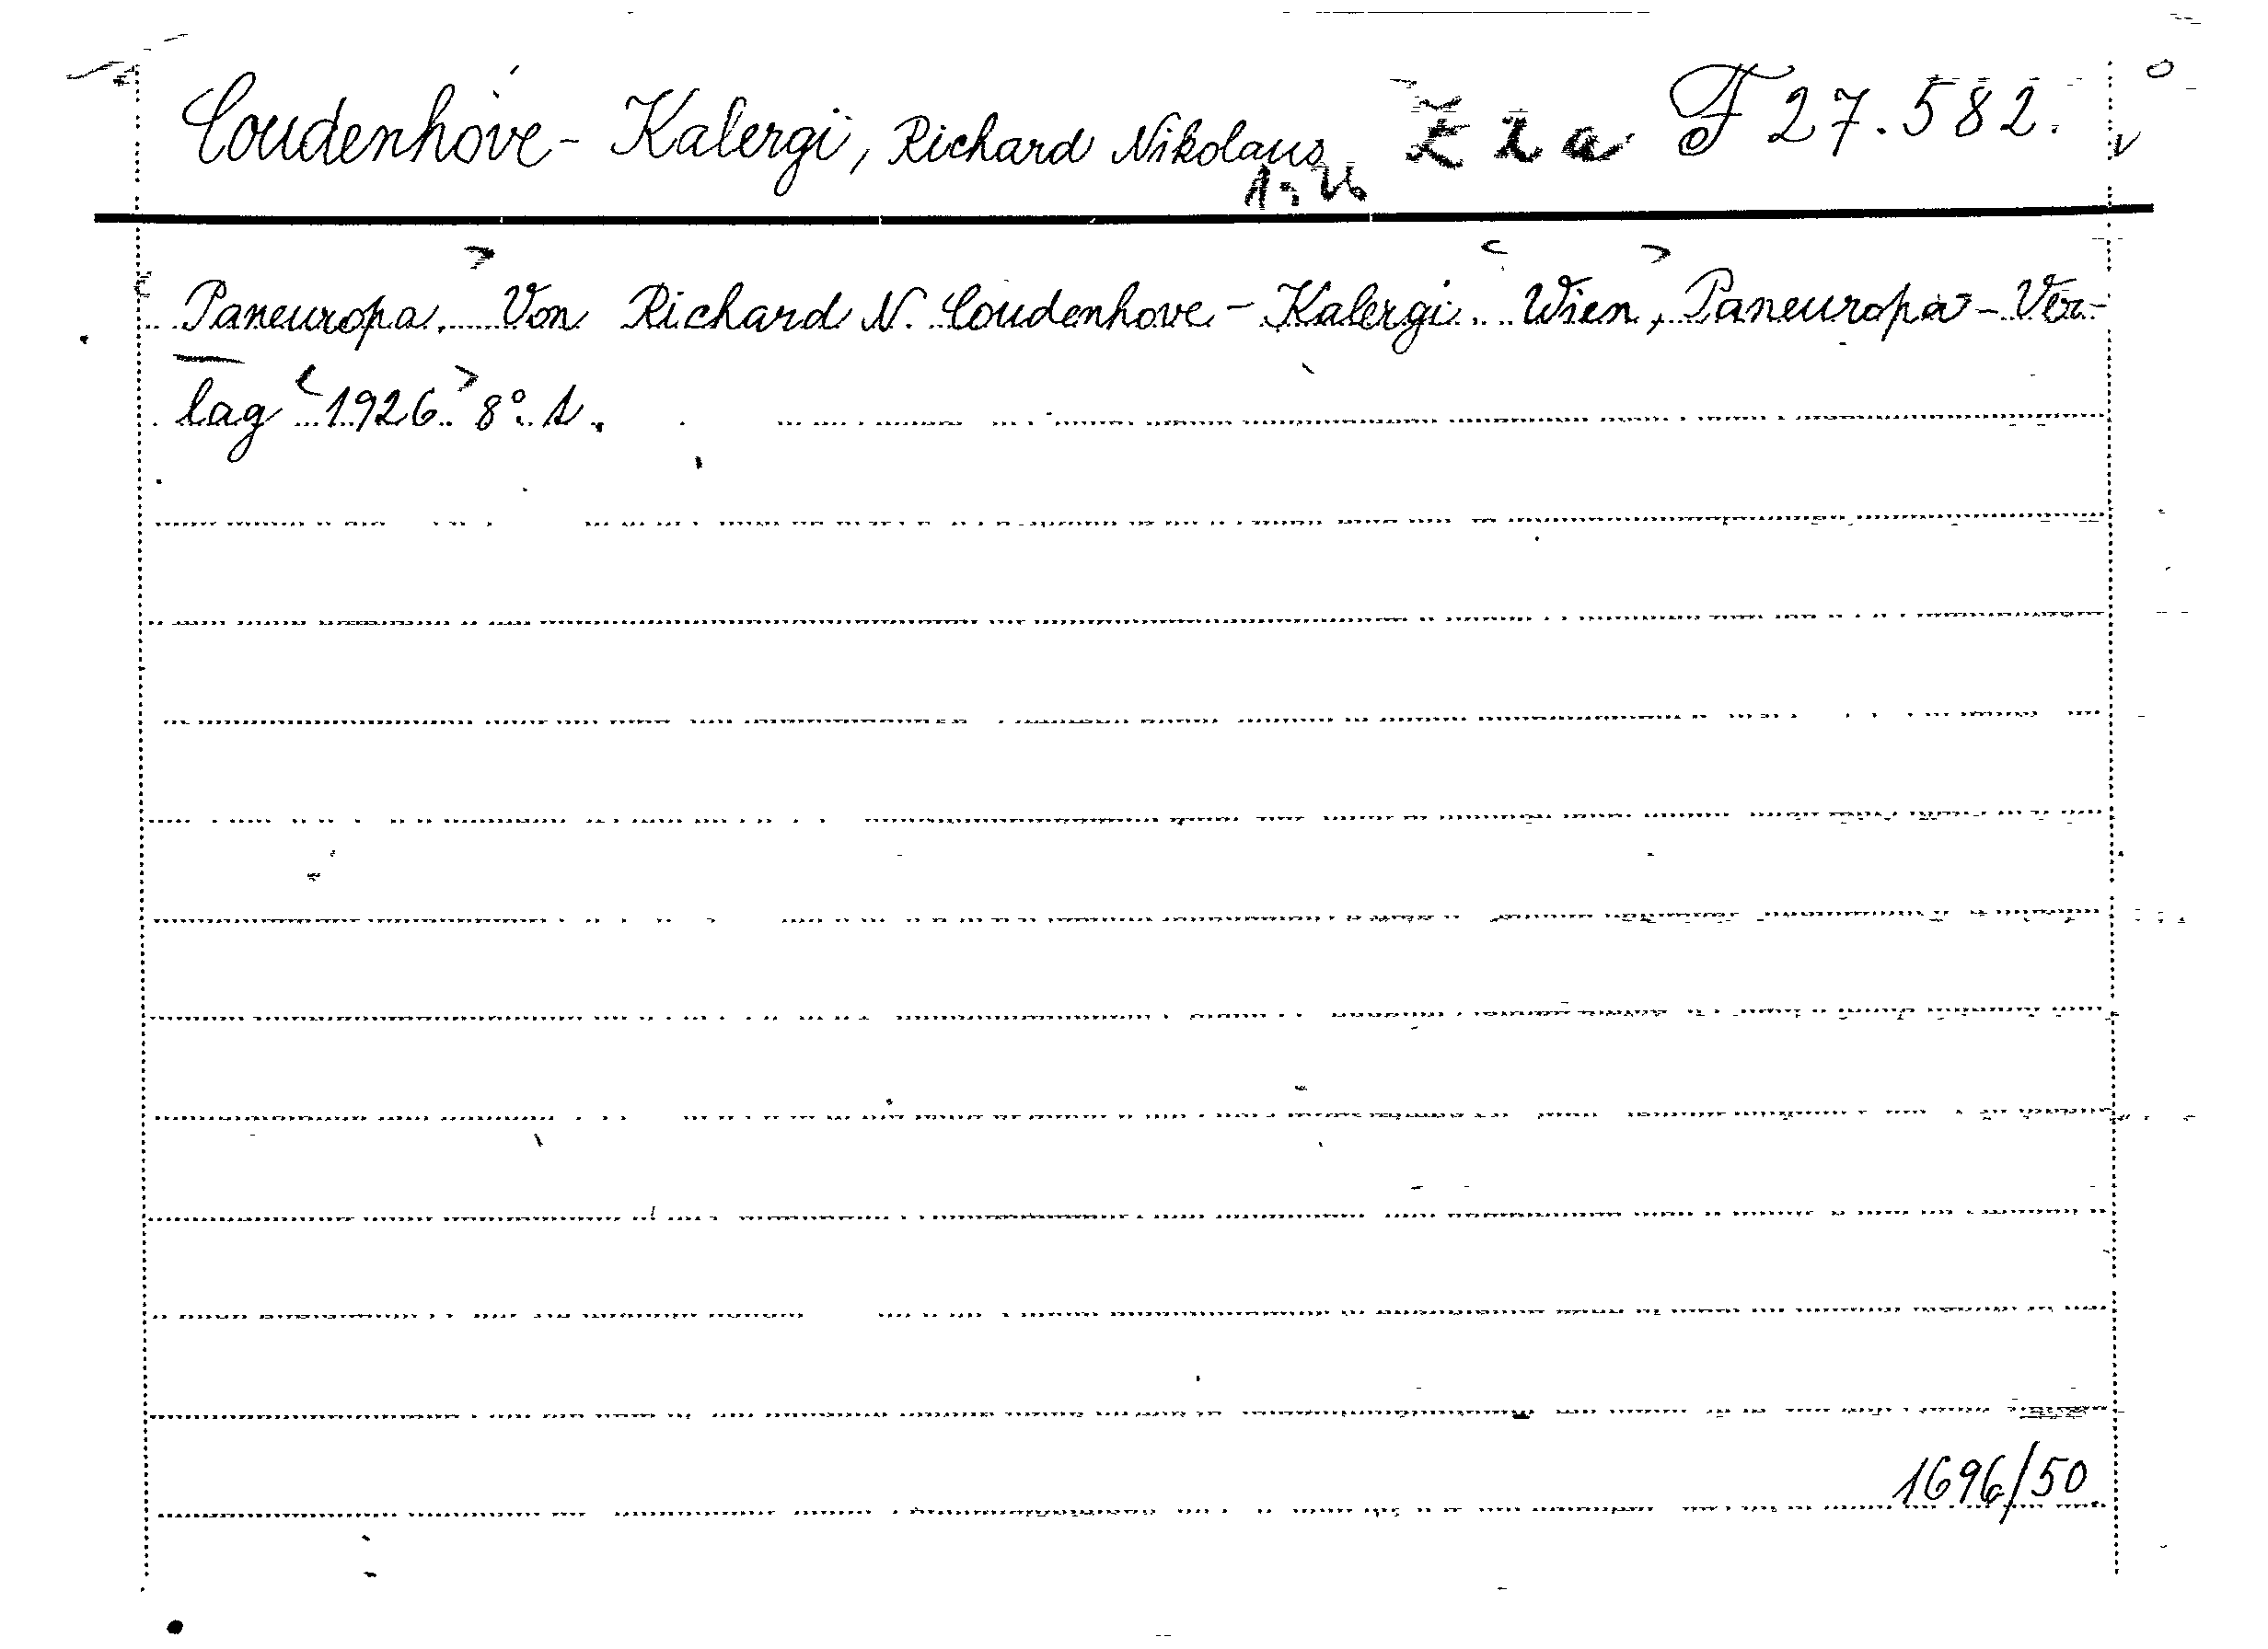 Coudenhove-Kalergi, Richard Nikolaus F 27.582.
Paneuropa. Von Richard N. Coudenhove-Kalergi. Wien, Paneuropa-Ver-
lag 1926. 8°. 1.
1696/50.